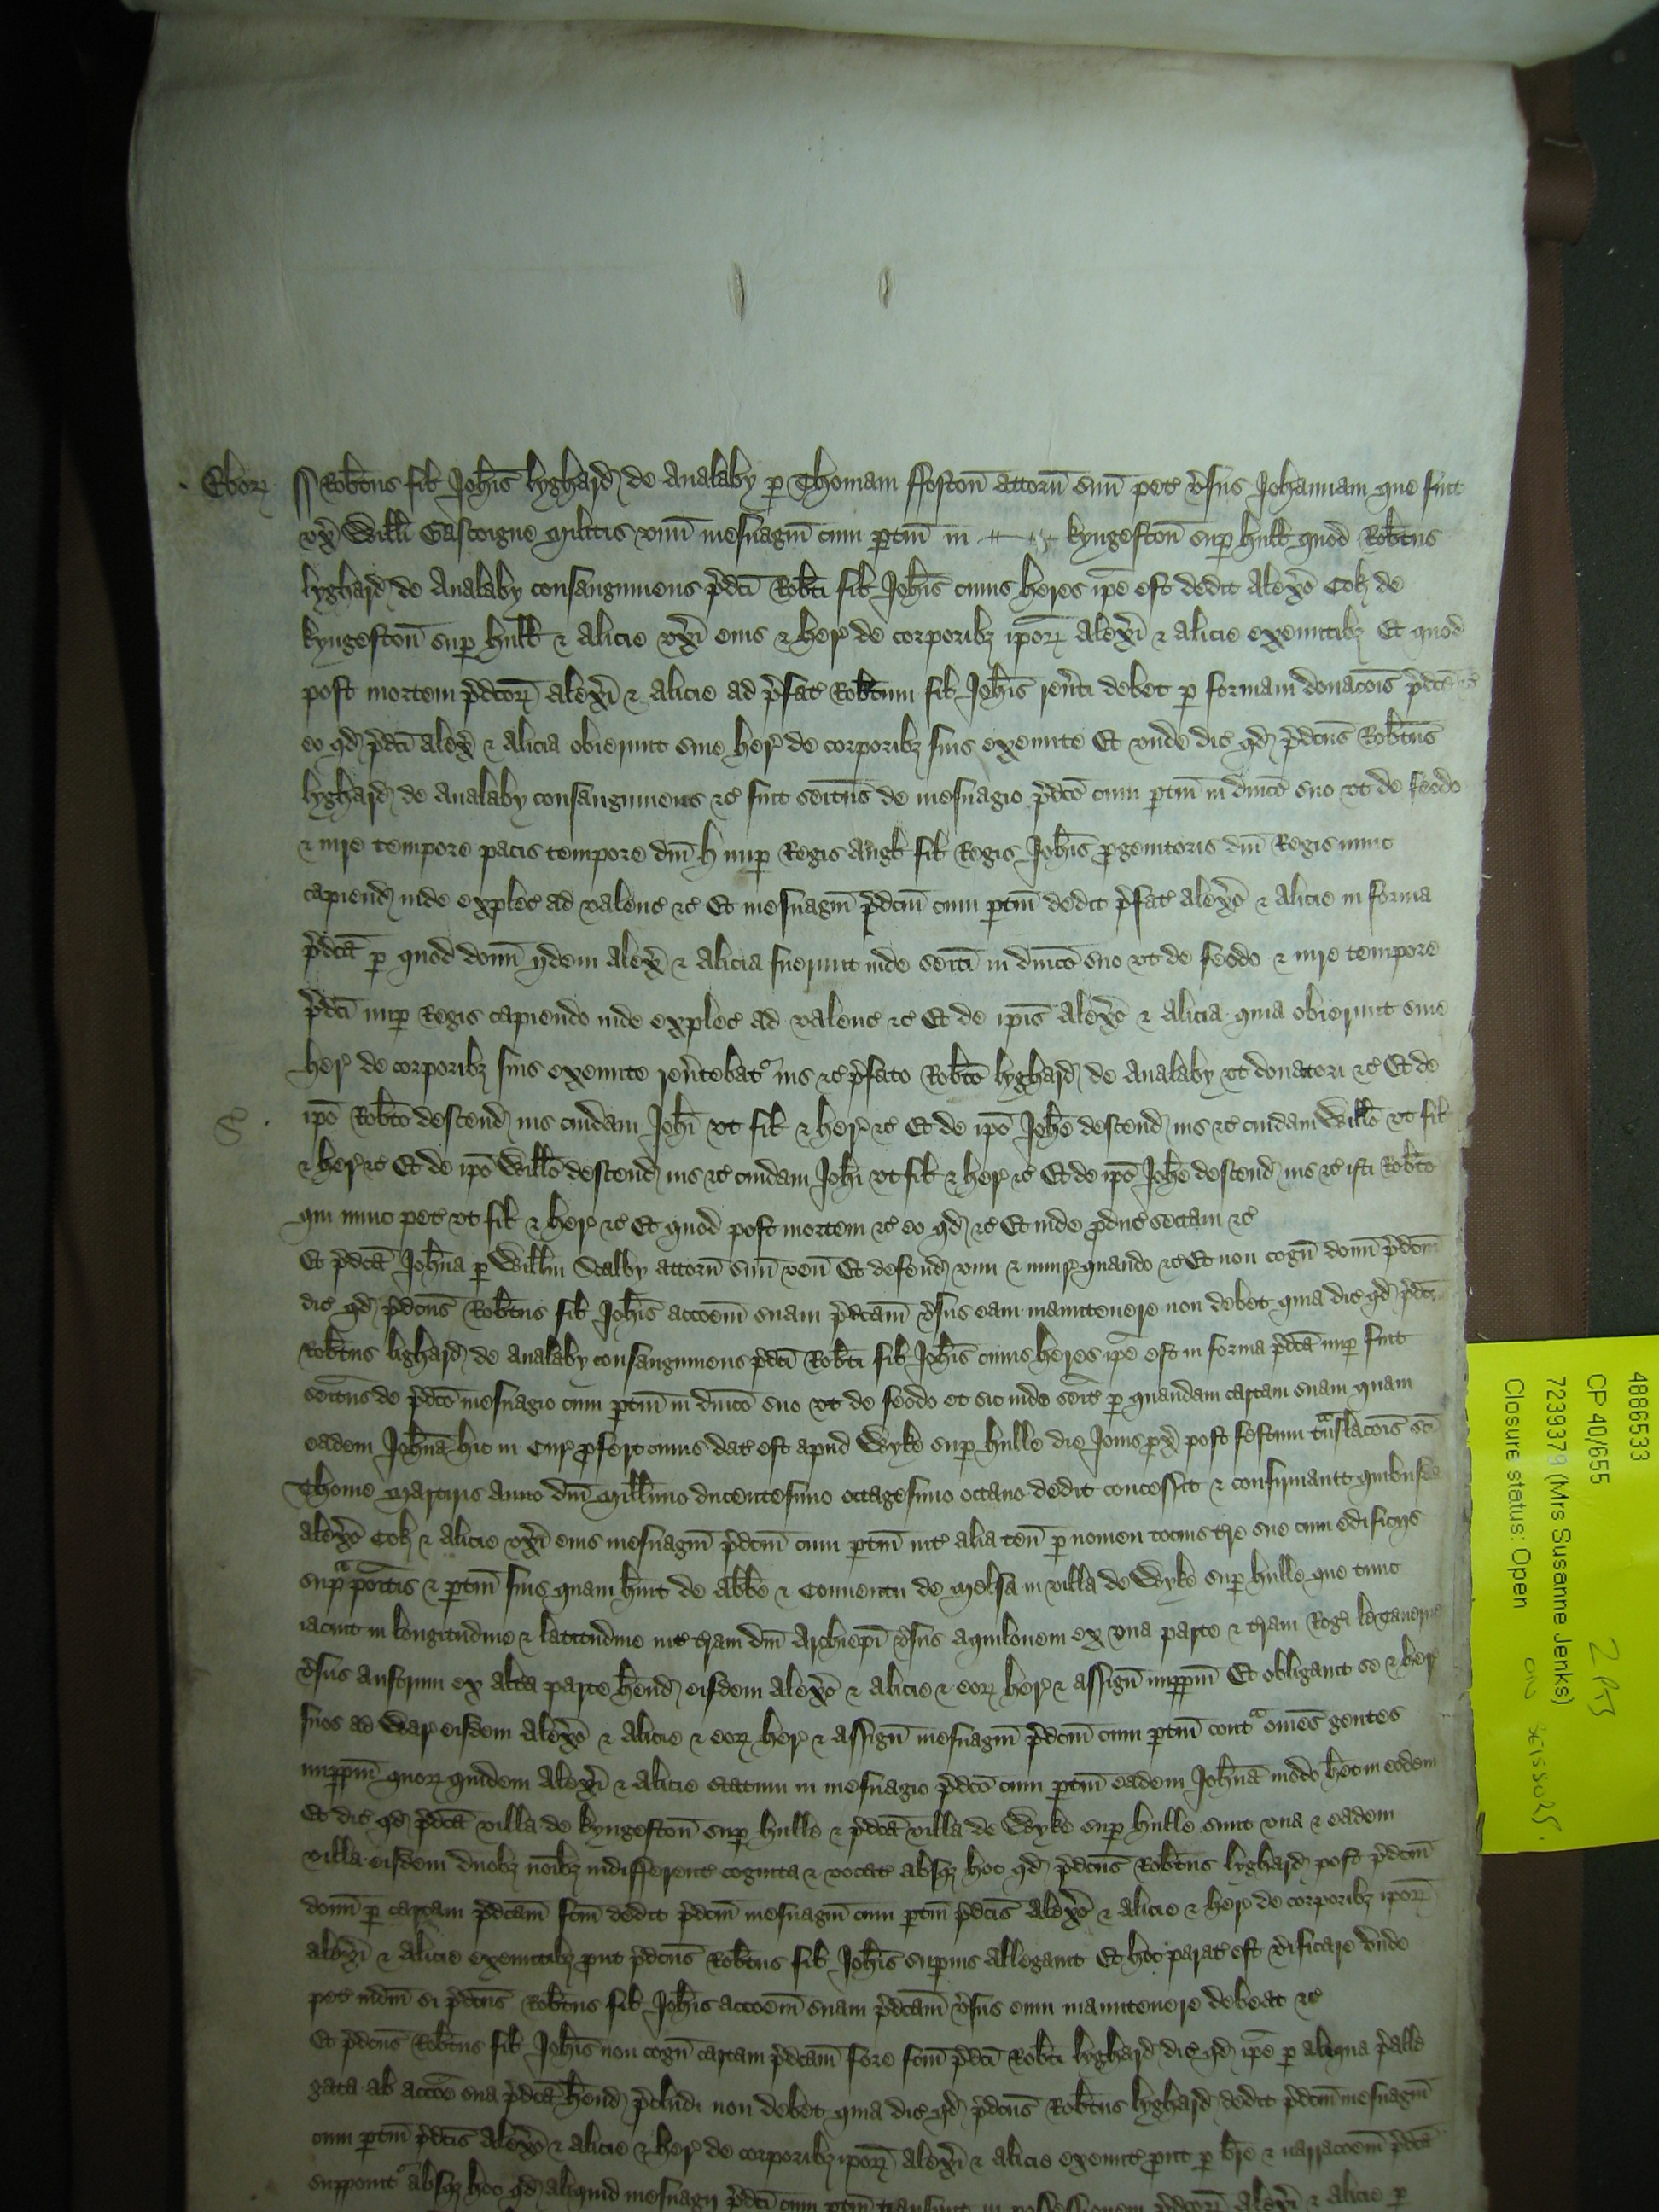 Ebor̛ ss Rob̄tus fil̄ Joh̄is lyghard̛ de Analaby p Thomam ffoston̄ attorn̄ suū pet̛ v̛sus Johannam que fuit
vx̛ Will̄i Gascoigne Militis vnū mesuagiū cum ptin̄ in kyngeston̄ sup hull̄ quod Rob̄tus
lyghard̛ de Analaby consanguineus p̛dc̄i Rob̄ti fil̄ Joh̄is cuius heres ip̄e est dedit Alex̄o Cok̛ de
kyngeston̄ sup hull̄ & Alicie vx̄i eius & her̛ de corporib₃ ip̄or̛ Alex̄i & Alicie exeuntib₃ Et quod
post mortem p̛dc̄or̛ Alex̄i & Alicie ad p̛fat̛ Rob̄tum fil̄ Joh̄is rev̛ti debet p formam donac̄ois p̛dc̄e
eo qd̛ p̛dc̄i Alex̄ & Alicia obierunt sine her̛ de corporib₃ suis exeunte Et vnde dic̛ qd̛ p̛dc̄us Rob̄tus
lyghard̛ de Analaby consanguineus &c̛ fuit seitus de mesuagio p̛dc̄o cum ptin̄ in dn̄ico suo vt de feodo
& iure tempore pacis tempore dn̄i H nup Regis Angl̄ fil̄ Regis Joh̄is pgenitoris dn̄i Regis nunc
capiend̛ inde explec̛ ad valenc̛ &c̛ Et mesuagiū p̛dc̄m cum ptin̄ dedit p̛fat̛ Alex̄o & Alicie in forma
p̛dc̄a p quod donū ijdem Alex̄ & Alicia fuerunt inde seiti in dn̄ico suo vt de feodo & iure tempore
p̛dc̄i nup Regis capiendo inde explec̛ ad valenc̛ &c̛ Et de ip̄is Alex̄o & Alicia quia obierunt sine
her̛ de corporib₃ suis exeunte rev̛tebat̛ ius &c̛ p̛fato Rob̄to lyghard̛ de Analaby vt donatori &c̛ Et de
ip̄o Rob̄to descend̛ ius cuidam Joh̄i vt fil̄ & her̛ &c̛ Et de ip̄o Joh̄e descend̛ ius &c̛ cuidam Will̄o vt fil̄
& her̛ &c̛ Et de ip̄o Will̄o descend̛ ius &c̛ cuidam Joh̄i vt fil̄ & her̛ &c̛ Et de ip̄o Joh̄e descend̛ ius &c̛ isti Rob̄to
qui nunc pet̛ vt fil̄ & her̛ &c̛ Et quod post mortem &c̛ eo qd̛ &c̛ Et inde pduc̛ sectam &c̛
Et p̛dc̄a Joh̄na p Will̄m Scalby attorn̄ suū ven̄ Et defend̛ vim & iniur̛ quando &c̛ Et non cogn̄ donū p̛dc̄m
dic̛ qd̛ p̛dc̄us Rob̄tus fil̄ Joh̄is acc̄oem suam p̛dc̄am v̛sus eam manutenere non debet quia dic̛ qd̛ p̛dc̄us
Rob̄tus lighard̛ de Analaby consanguineus p̛dc̄i Rob̄ti fil̄ Joh̄is cuius heres ip̄e est in forma p̛dc̄a nup fuit
seitus de p̛dc̄o mesuagio cum ptin̄ in dn̄ico suo vt de feodo et sic inde seit̛ p quandam cartam suam quam
eadem Joh̄na hic in Cur̛ pfert cuius dat̛ est apud Wyke sup hulle die Jouis px̄ post festum t̛nslac̄ois sc̄i
Thome Martiris Anno dn̄i Mill̄imo ducentesimo octagesimo octauo dedit concessit & confirmauit quibusdam
Alex̄o Cok̛ & Alicie vx̄i eius mesuagiū p̛dc̄m cum ptin̄ int̛ alia ten̄ p nomen tocius t̛re sue cum edificijs
sup̛poitis & ptin̄ suis quam h̄uit de Abb̄e & Conuentu de Melsa in villa de Wyke sup hulle que tunc
iacuit in longitudine & latitudine int̛ t̛ram dn̄i Archiep̄i v̛sus aquilonem ex vna parte & t̛ram Rog̛i le Tauerner
v̛sus austrum ex alt̛a parte h̄end̛ eisdem Alex̄o & Alicie & eor̛ her̛ & assign̄ imppm̄ Et obligauit se & her̛
suos ad War̛ eisdem Alex̄o & Alicie & eor̛ her̛ & assign̄ mesuagiū p̛dc̄m cum ptin̄ cont̛ om̄es gentes
imppm̄ quor̛ quidem Alex̄i & Alicie statum in mesuagio p̛dc̄o cum ptin̄ eadem Joh̄na modo h̄et in eodem
Et dic̛ qd̛ p̛dc̄a villa de kyngeston̄ sup hulle & p̛dc̄a villa de Wyke sup hulle sunt vna & eadem
villa eisdem duob₃ no̅ib₃ indifferent̛ cognita & vocat̛ absq₃ hoc qd̛ p̛dc̄us Rob̄tus lyghard̛ post p̛dc̄m
donū p cartam p̛dc̄am fc̄m dedit p̛dc̄m mesuagiū cum ptin̄ p̛dc̄is Alex̄o & Alicie & her̛ de corporib₃ ip̄or̛
Alex̄i & Alicie exeuntib₃ put p̛dc̄us Rob̄tus fil̄ Joh̄is supius allegauit Et hoc parat̛ est v̛ificare vnde
pet̛ iudm̄ si p̛dc̄us Rob̄tus fil̄ Joh̄is acc̄oem suam p̛dc̄am v̛sus eum manutenere debeat &c̛
Et p̛dc̄us Rob̄tus fil̄ Joh̄is non cogn̄ cartam p̛dc̄am fore fc̄m p̛dc̄i Rob̄ti lyghard̛ dic̛ qd̛ ip̄e p aliqua p̛alle
gata ab acc̄oe sua p̛dc̄a h̄end̛ p̛cludi non debet quia dic̛ qd̛ p̛dc̄us Rob̄tus lyghard̛ dedit p̛dc̄m mesuagiū
cum ptin̄ p̛dc̄is Alex̄o & Alicie & her̛ de corporib₃ ip̄or̛ Alex̄i & Alicie exeunt̛ put p br̄e & narrac̄oem p̛dc̄a
supponit̛ absq₃ hoc qd̛ aliquid mesuagij p̛dc̄i cum ptin̄ transiuit in possessionem p̛dc̄or̛ Alex̄i & Alicie p
4886533
CP 40/655
7239379 (Mrs Susanne Jenks)
Closure status: Open